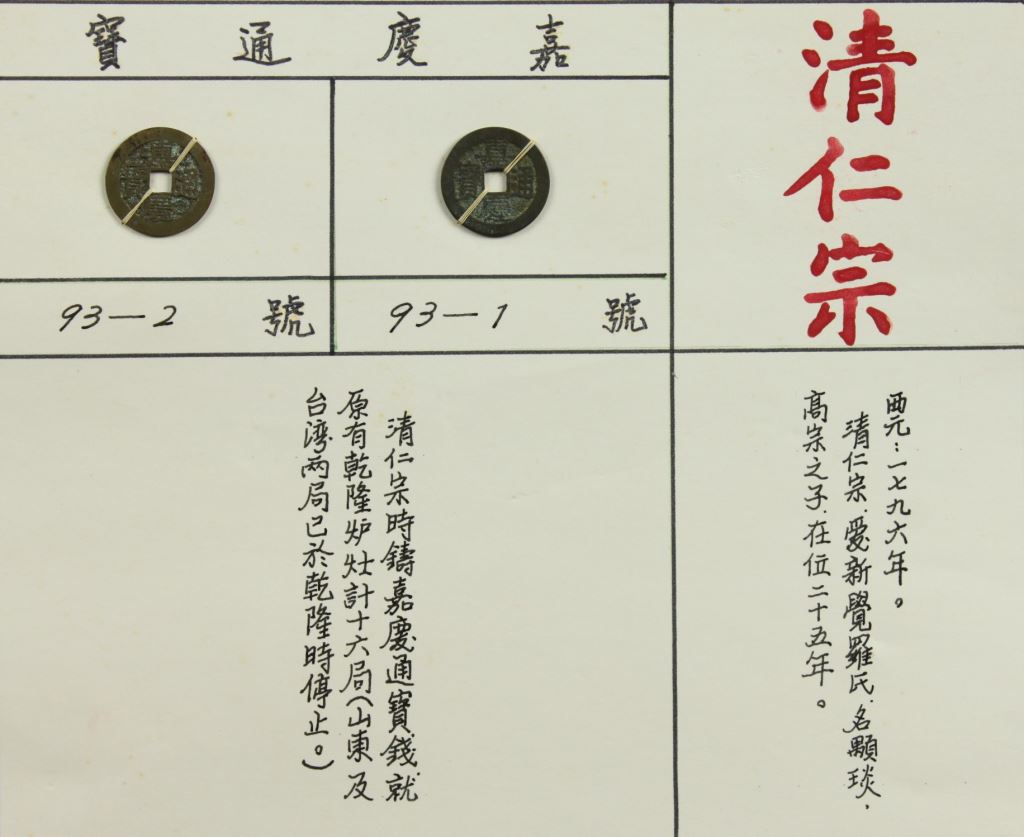 清仁宗
西元：一七九六年。
清仁宗．愛新覺羅氏．名顒琰．
高宗之子．在位二十五年。
嘉慶通寶
嘉慶通寶
號 93—1
嘉慶通寶
號 93—2
清仁宗時鑄嘉慶通寶錢．就
原有乾隆炉灶計十六局（山東及
台湾两局已於乾隆時停止。）